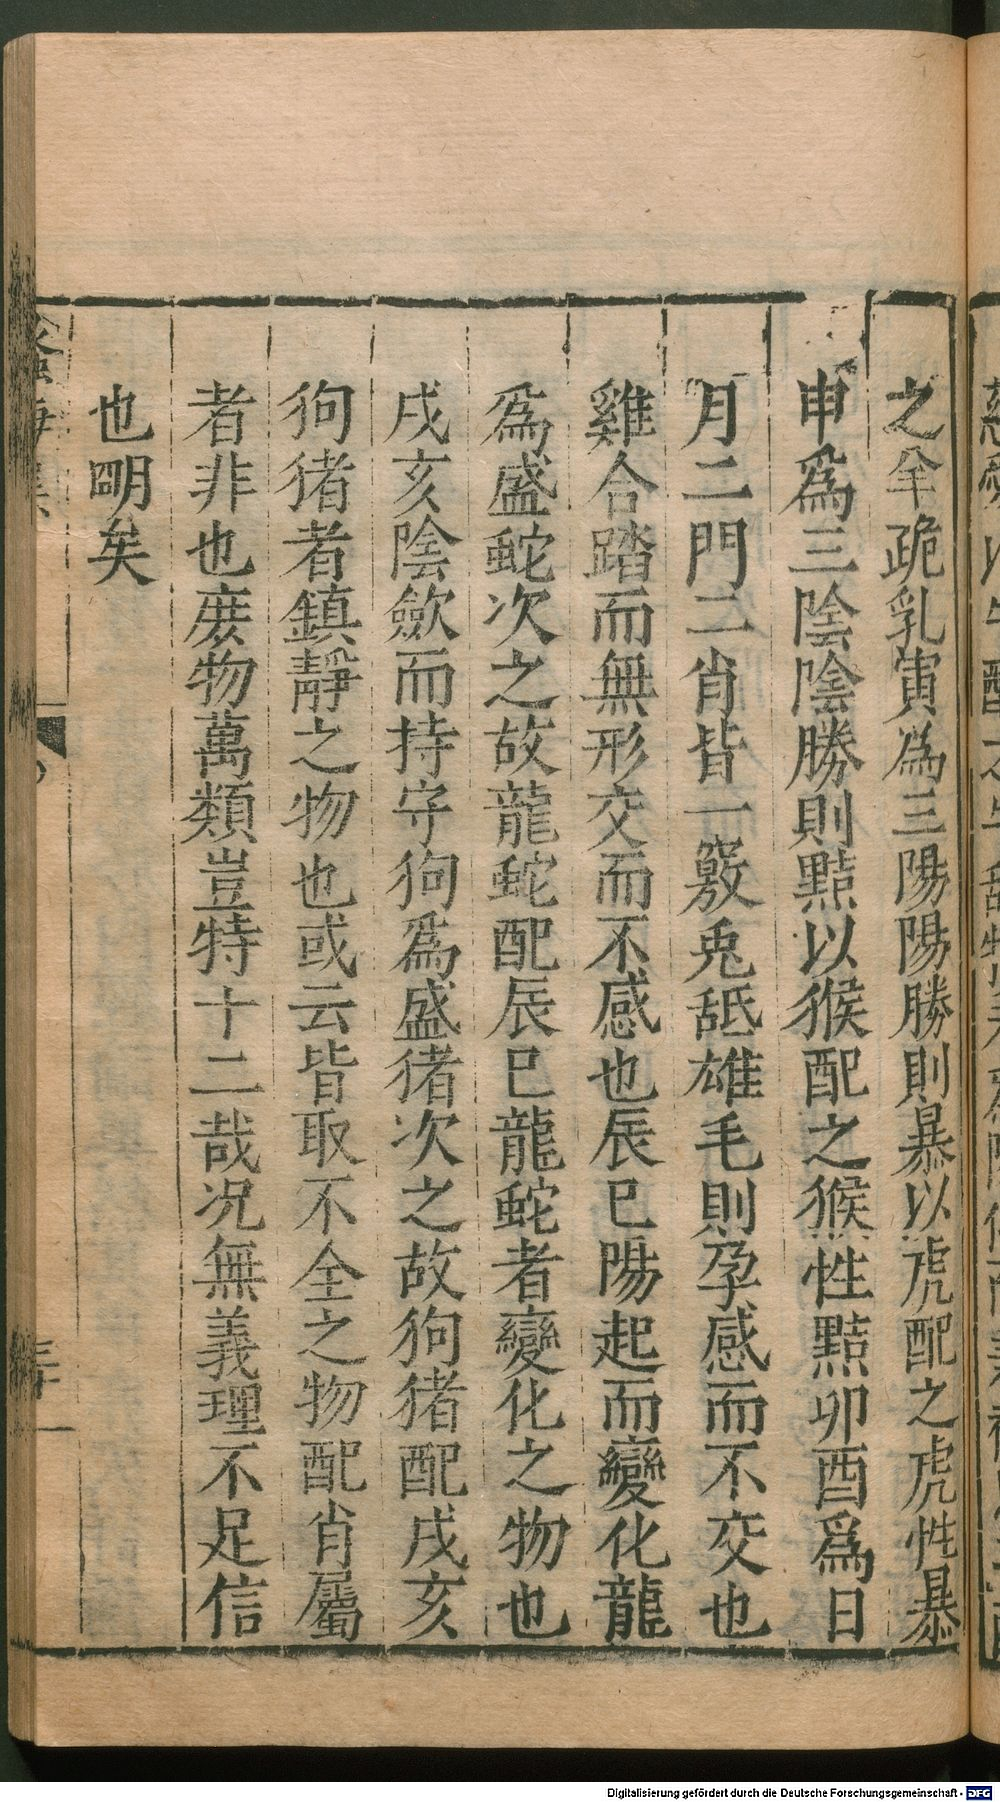 之羊跪乳寅爲三陽陽勝則暴以虎配之虎性暴
申爲三陰陰勝則黠以猴配之猴性黠卯酉爲日
月二門二肖皆一竅兎舐雄毛則孕感而不交也
雞合踏而無形交而不感也辰巳陽起而變化龍
爲盛蛇次之故龍蛇配辰巳龍蛇者變化之物也
戌亥陰歛而持守狗爲盛猪次之故狗猪配戌亥
狗猪者鎮靜之物也或云皆取不全之物配肖屬
者非也庶物萬類豈特十二哉况無義理不足信
也明矣
Digitalisierung gefördert durch die Deutsche Forschungsgemeinschaft - DFG